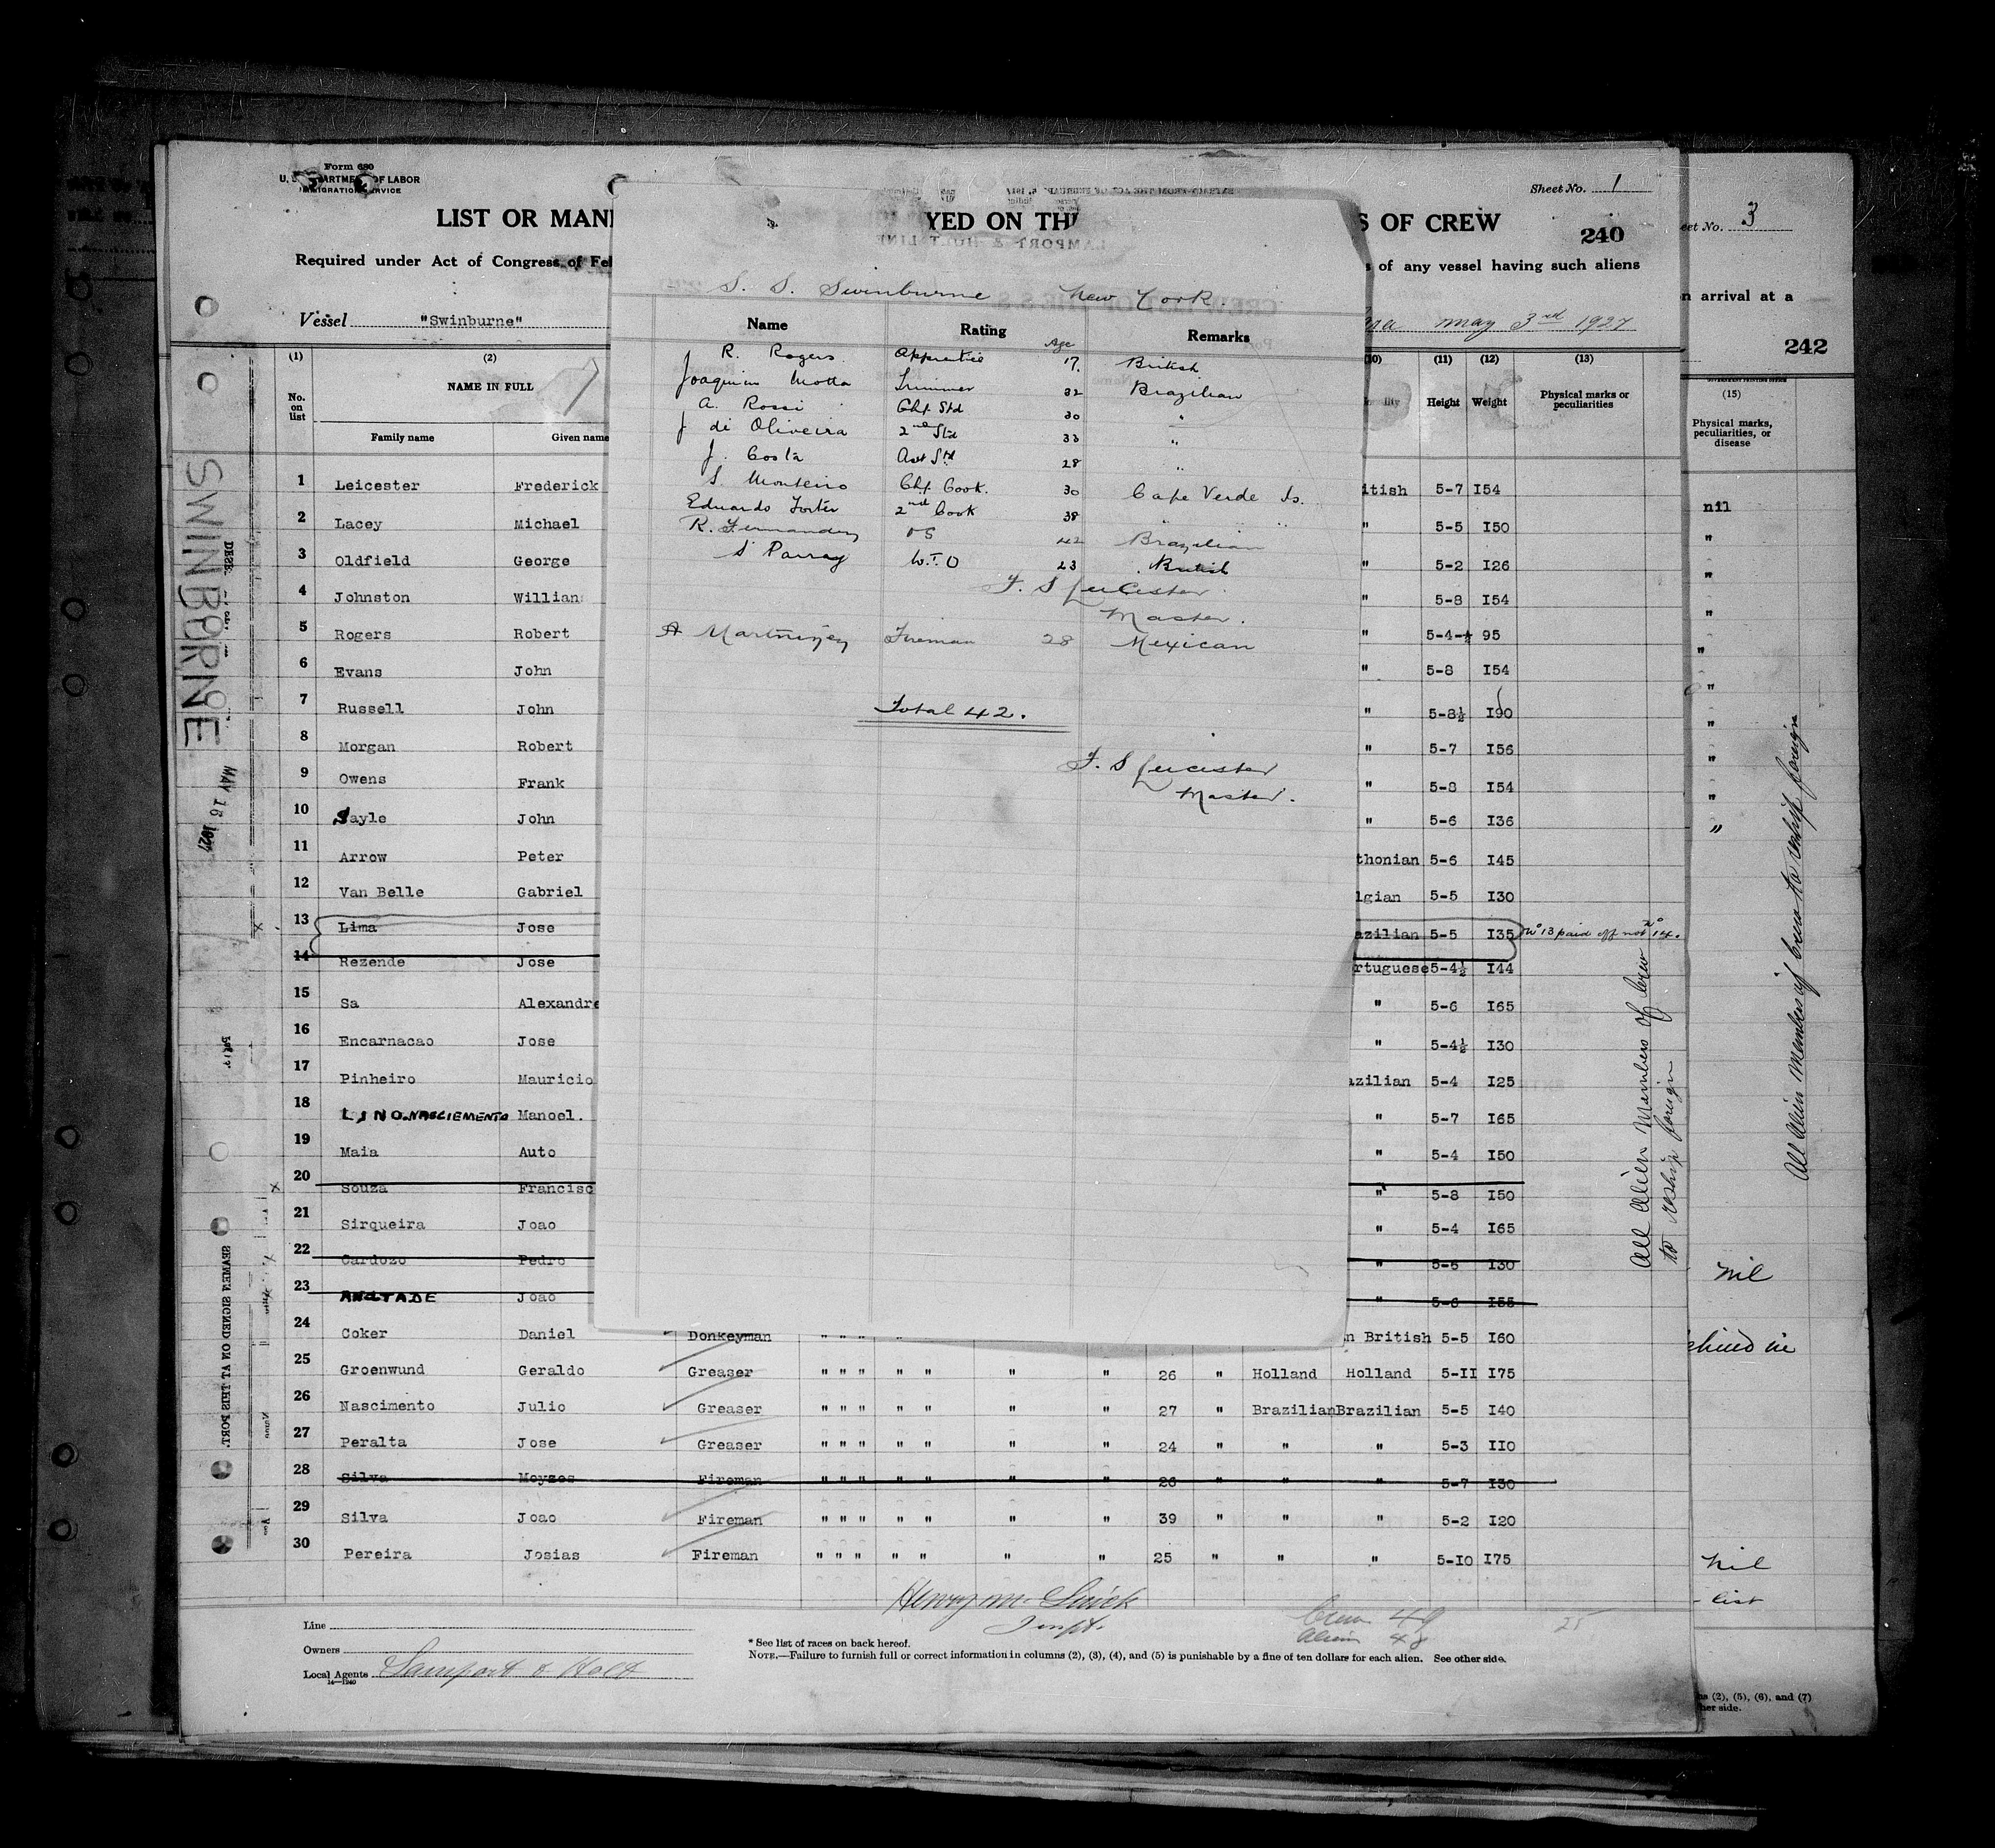 Form 680
U. S. DEPARTMENT OF LABOR
IMMIGRATION SERVICE
Sheet No. 1
LIST OR MANI
YED ON TH
S OF CREW
240
Required under Act of Congress of Fe
s of any vessel having such aliens
Vessel "Swinburne"
May 3rd 1927
(1) (2) (11) (12) (13)
No. on list
NAME IN FULL
Height Weight Physical marks or peculiarities
Family name Given name
1 Leicester Frederick itish 5-7 I54
2 Lacey Michael " 5-5 I50
3 Oldfield George " 5-2 I26
4 Johnston Willian " 5-8 I54
5 Rogers Robert " 5-4-½ 95
6 Evans John " 5-8 I54
7 Russell John " 5-8½ I90
8 Morgan Robert " 5-7 I56
9 Owens Frank " 5-8 I54
10 Sayle John " 5-6 I36
11 Arrow Peter thonian 5-6 I45
12 Van Belle Gabriel lgian 5-5 I30
13 Lima Jose azilian 5-5 I35 No 13 paid off not No 14.
14 Rezende Jose rtuguese 5-4½ I44
15 Sa Alexandre " 5-6 I65
16 Encarnacao Jose " 5-4½ I30
17 Pinheiro Mauricio azilian 5-4 I25
18 LINO NASCIEMENTO Manoel. " 5-7 I65
19 Maia Auto " 5-4 I50
20 Souza Francisc " 5-8 I50
21 Sirqueira Joao " 5-4 I65
22 Cardozo Pedro " 5-6 I30
23 Joao " 5-6 I55
24 Coker Daniel Donkeyman " " " " n British 5-5 I60
25 Groenwund Geraldo Greaser " " " " " " " 26 " Holland Holland 5-II I75
26 Nascimento Julio Greaser " " " " " " " 27 " Brazilian Brazilian 5-5 I40
27 Peralta Jose Greaser " " " " " " " 24 " " " 5-3 IIO
28 Silva Moyzes Fireman " " " " " " " 26 " " " 5-7 I30
29 Silva Joao Fireman " " " " " " " 39 " " " 5-2 I20
30 Pereira Josias Fireman " " " " " " " 25 " " " 5-IO I75
Line
Owners
Local Agents Lamport & Holt
14—1240
Inspt.
Crew 49
Alien 48
25
* See list of races on back hereof.
NOTE.—Failure to furnish full or correct information in columns (2), (3), (4), and (5) is punishable by a fine of ten dollars for each alien. See other side.
All Alien Members of Crew
to reship foreign
SWINBURNE
MAY 16 1927
SEAMEN SIGNED ON AT THIS PORT.
LAMPORT & HOLT LINE
S. S. Swinburne New York.
Name Rating Age Remarks
J R. Rogers Apprentice 17. British
Joaquim Motta Trimmer 32 Brazilian
A. Rossi Chf. Std 30 "
J di Oliveira 2nd Std 33 "
J. Costa Asst Std 28 "
S Monteiro Chf. Cook. 30 Cape Verde Is.
Eduardo 2nd Cook 38 " "
R. Fernandez OS 42 Brazilian
S Parray W.T.O 23 British
F. S Leicester
Master.
A Fireman 28 Mexican
Total 42.
F. S Leicester
Master.
eet No. 3
n arrival at a
242
(15)
Physical marks, peculiarities, or disease
nil
"
"
"
"
"
"
"
"
"
nil
nil
list
All Alien Members of Crew to reship foreign
ns (2), (5), (6), and (7)
her side.